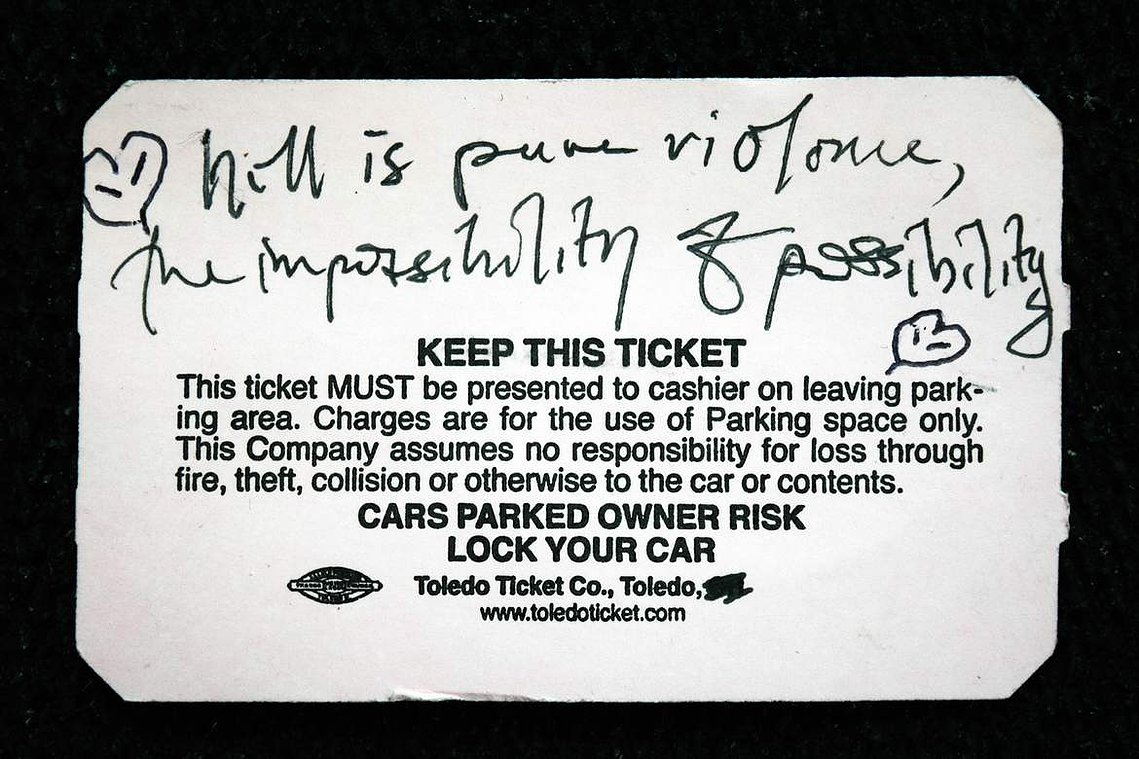 hill is pure violence,
the impossibility of possibility
KEEP THIS TICKET
This ticket MUST be presented to cashier on leaving park-
ing area. Charges are for the use of Parking space only.
This Company assumes no responsibility for loss through
fire, theft, collision or otherwise to the car or contents.
CARS PARKED OWNER RISK
LOCK YOUR CAR
Toledo Ticket Co., Toledo,
www.toledoticket.com